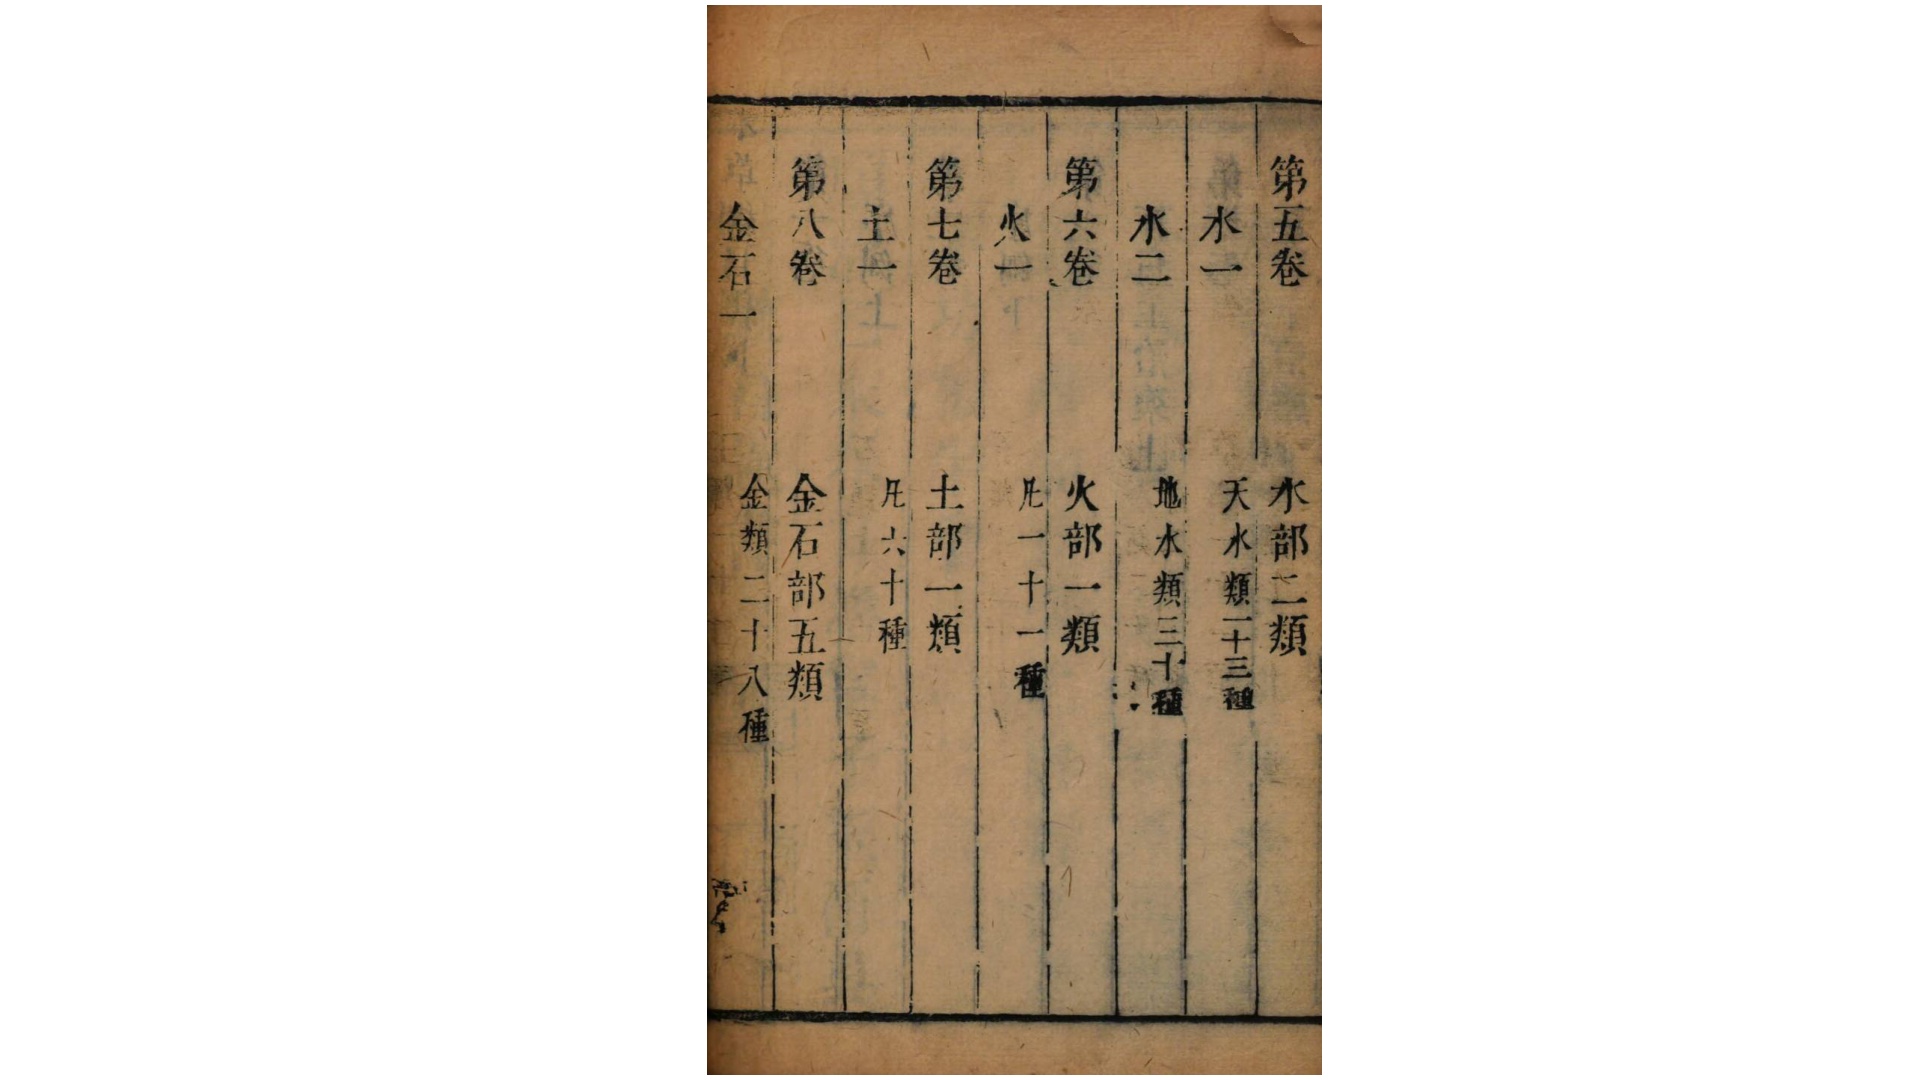 第五卷 水部二類
水一 天水類一十三種
水二 地水類三十種
第六卷 火部一類
火一 凡一十一種
第七卷 土部一類
土一 凡六十種
第八卷 金石部五類
金石一 金類二十八種